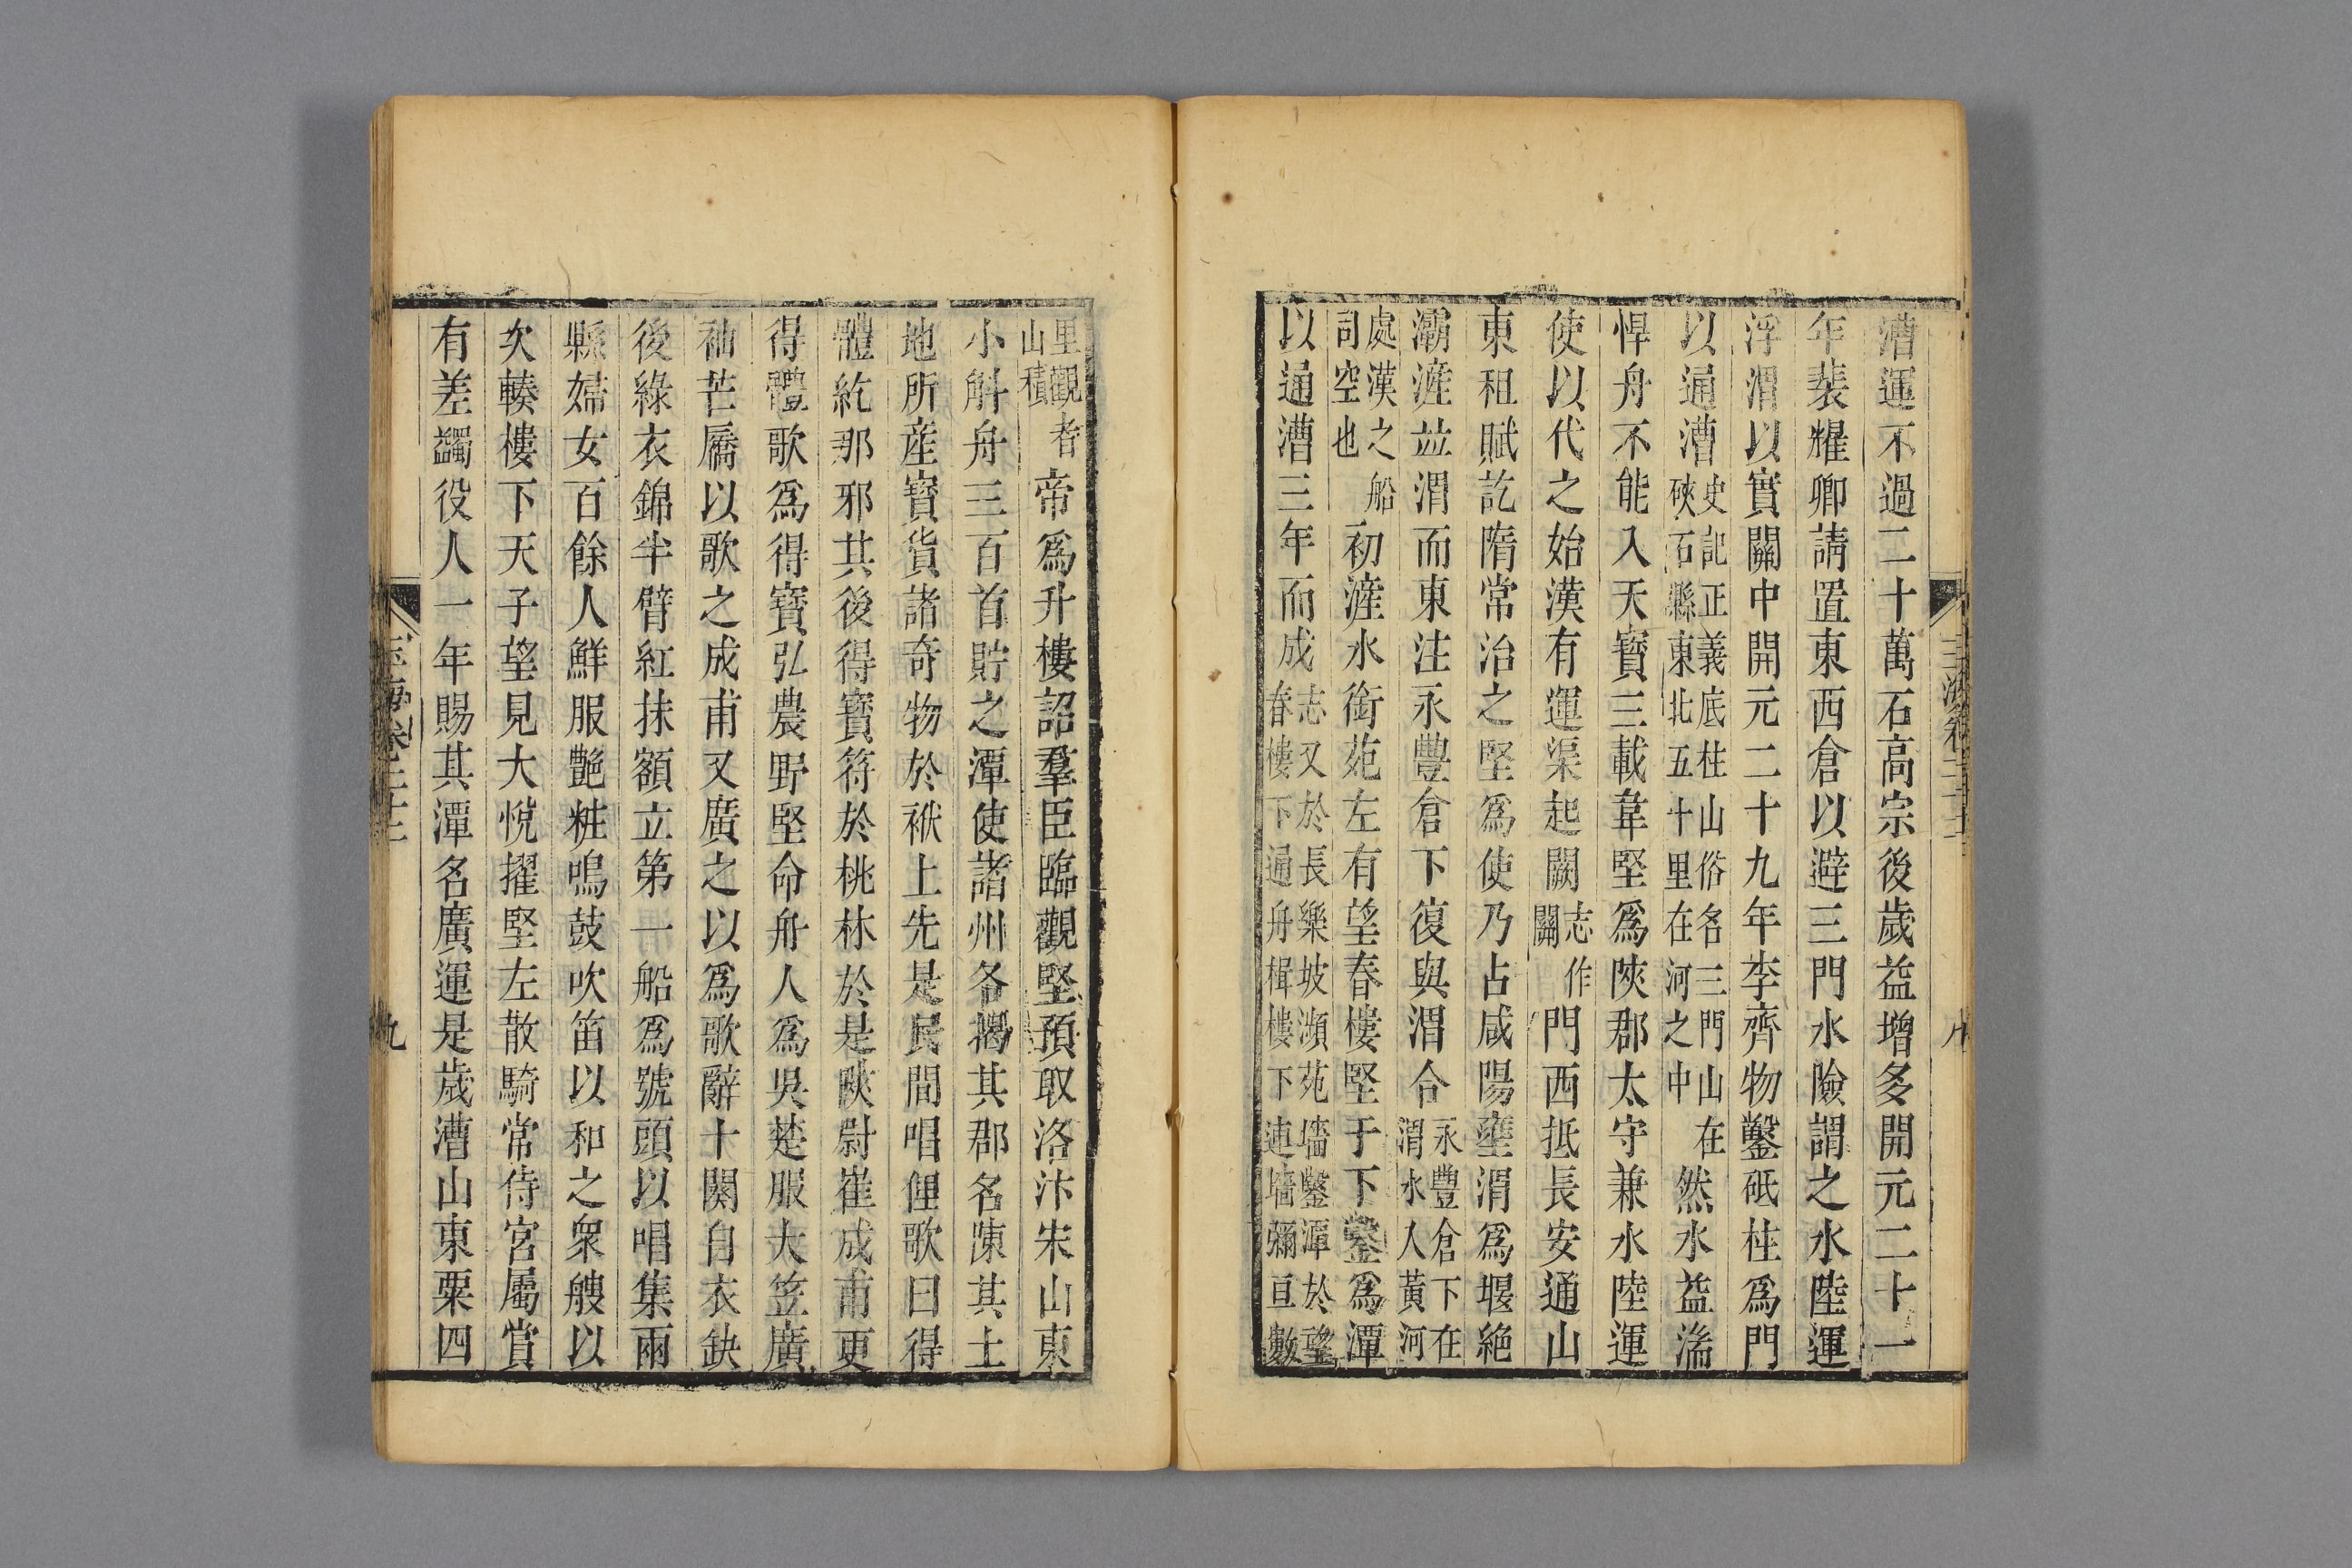 漕運不過二十萬石高宗後歲益增多開元二十一
年裴耀卿請置東西倉以避三門水險謂之水陸運
浮渭以實關中開元二十九年李齊物鑿砥柱爲門
以通漕史記正義底柱山俗名三門山在硤石縣東北五十里在河之中然水益湍
悍舟不能入天寶三載韋堅爲陝郡太守兼水陸運
使以代之始漢有運渠起關志作關門西抵長安通山
東租賦訖隋常治之堅爲使乃占咸陽壅渭爲堰絶
灞滻並渭而東注永豐倉下復與渭合永豐倉下在渭水入黃河
處漢之船司空也初滻水銜苑左有望春樓堅于下鑿爲潭
以通漕三年而成志又於長樂坡瀕苑墻鑿潭於望春樓下通舟楫樓下連墻彌亘數
里觀者山積帝爲升樓詔羣臣臨觀堅預取洛汴宋山東
小斛舟三百首貯之潭使諸州各揭其郡名陳其土
地所産寶貨諸奇物於栿上先是民間唱俚歌曰得
體紇那邪其後得寶符於桃林於是陝尉崔成甫更
得體歌爲得寶弘農野堅命舟人爲吳楚服大笠廣
袖芒屩以歌之成甫又廣之以爲歌辭十闋自衣缺
後綠衣錦半臂紅抹額立第一船爲號頭以唱集兩
縣婦女百餘人鮮服艶粧鳴鼓吹笛以和之衆艘以
次輳樓下天子望見大悅擢堅左散騎常侍官屬賞
有差蠲役人一年賜其潭名廣運是歲漕山東粟四